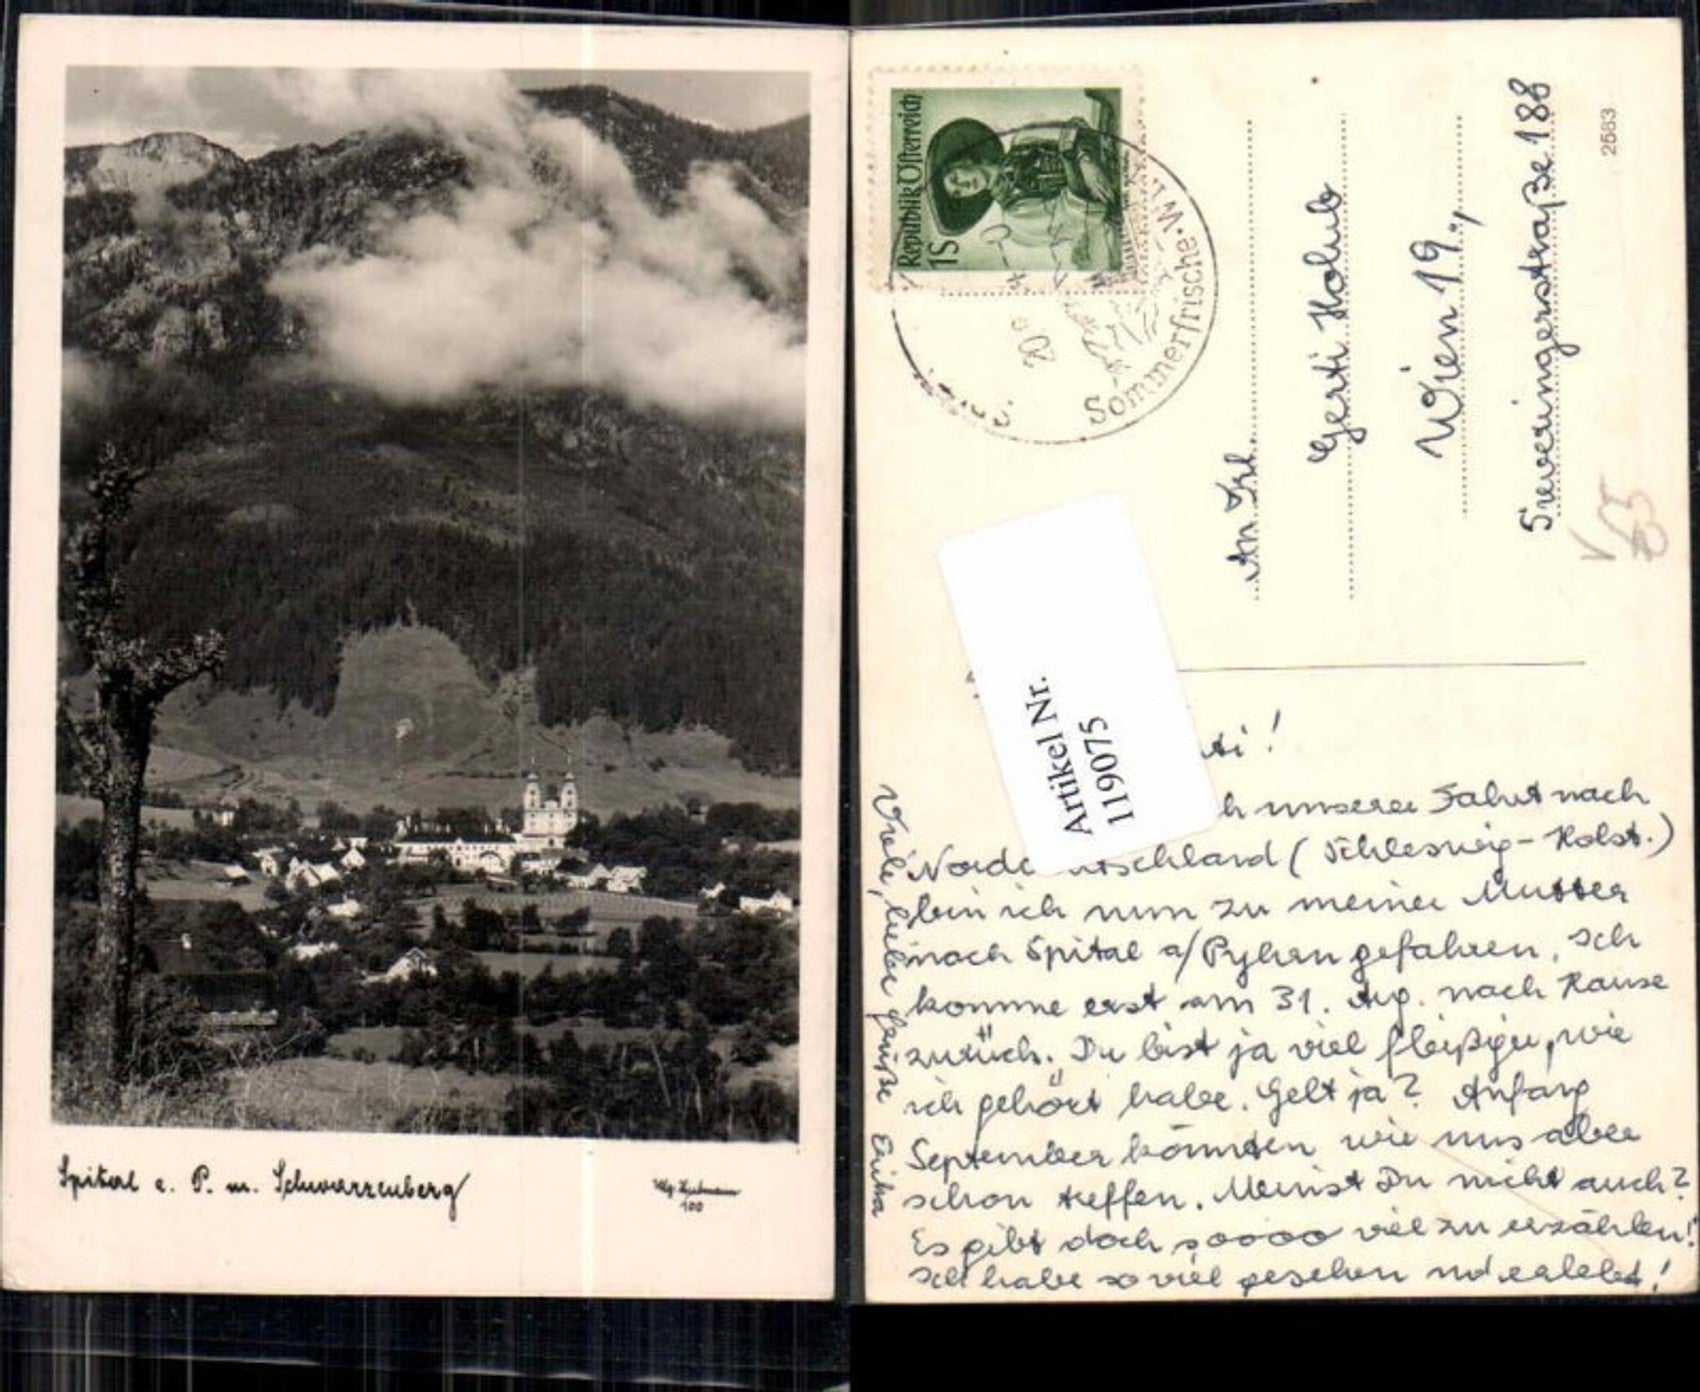 Spital a. P. m. Schwarzenberg
100
Republik Österreich
1S
Sommerfrische
20
An Frl.
Gerti Holub
Wien 19.,
Sieveringerstraße 188
2583
Artikel Nr.
119075
ti!
h unserer Fahrt nach
Nordd tschland (Schleswig-Holst.)
bin ich nun zu meiner Mutter
nach Spital a/Pyhrn gefahren. Ich
komme erst am 31. Aug. nach Hause
zurück. Du bist ja viel fleißiger, wie
ich gehört habe. Gelt ja? Anfang
September könnten wir uns aber
schon treffen. Meinst Du nicht auch?
Es gibt doch soooo viel zu erzählen!
Ich habe so viel gesehen und erlebt!
Viele, liebe Grüße Erika